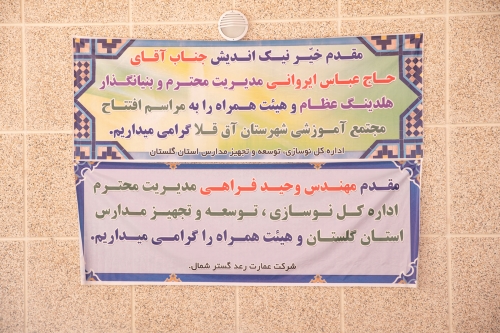 مقدم خیّر نیک اندیش جناب آقای
حاج عباس ایروانی مدیریت محترم و بنیانگذار
هلدینگ عظام و هیئت همراه را به مراسم افتتاح
مجتمع آموزشی شهرستان آق قلا گرامی میداریم.
اداره کل نوسازی، توسعه و تجهیز مدارس استان گلستان
مقدم مهندس وحید فراهی مدیریت محترم
اداره کل نوسازی ، توسعه و تجهیز مدارس
استان گلستان و هیئت همراه را گرامی میداریم.
شرکت عمارت رعد گستر شمال.